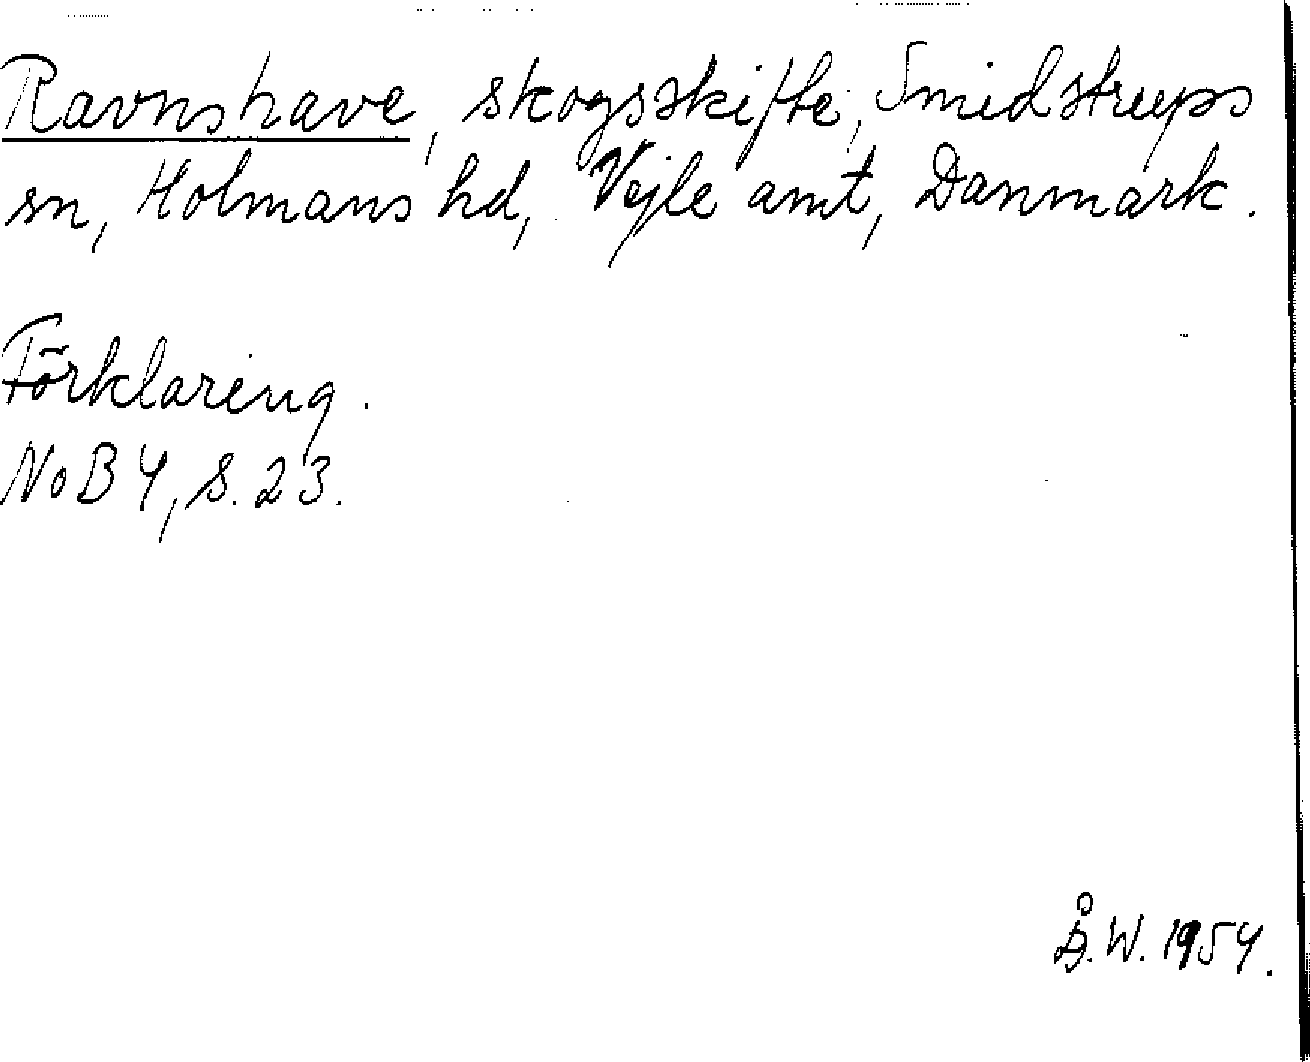 Ravnshave, skogsskifte, Smidstrups
sn, Holmans hd, Vejle amt, Danmark.
Förklaring.
NoB 4, s. 23.
Å.W. 1954.